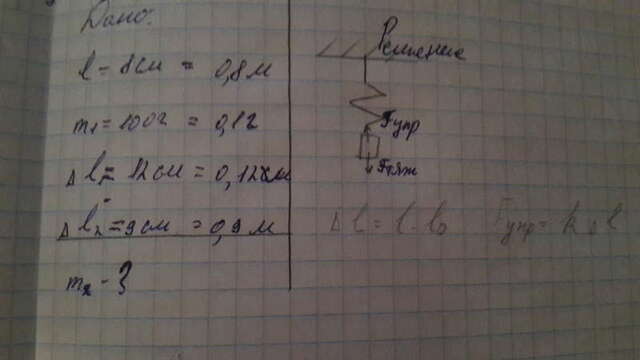 Дано:
l = 8см = 0,8м
m₁ = 100г = 0,1г
Δl₁ = 12см = 0,12м
Δl₂ = 9см = 0,9м
m₂ - ?
Решение
Fупр
Fтяж
Δl = l - l₀ Fупр = kΔl